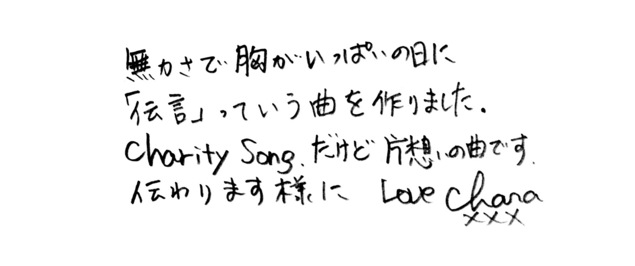 無力さで胸がいっぱいの日に
「伝言」っていう曲を作りました.
Charity Song.だけど片想いの曲です.
伝わります様に Love Chara
xxx